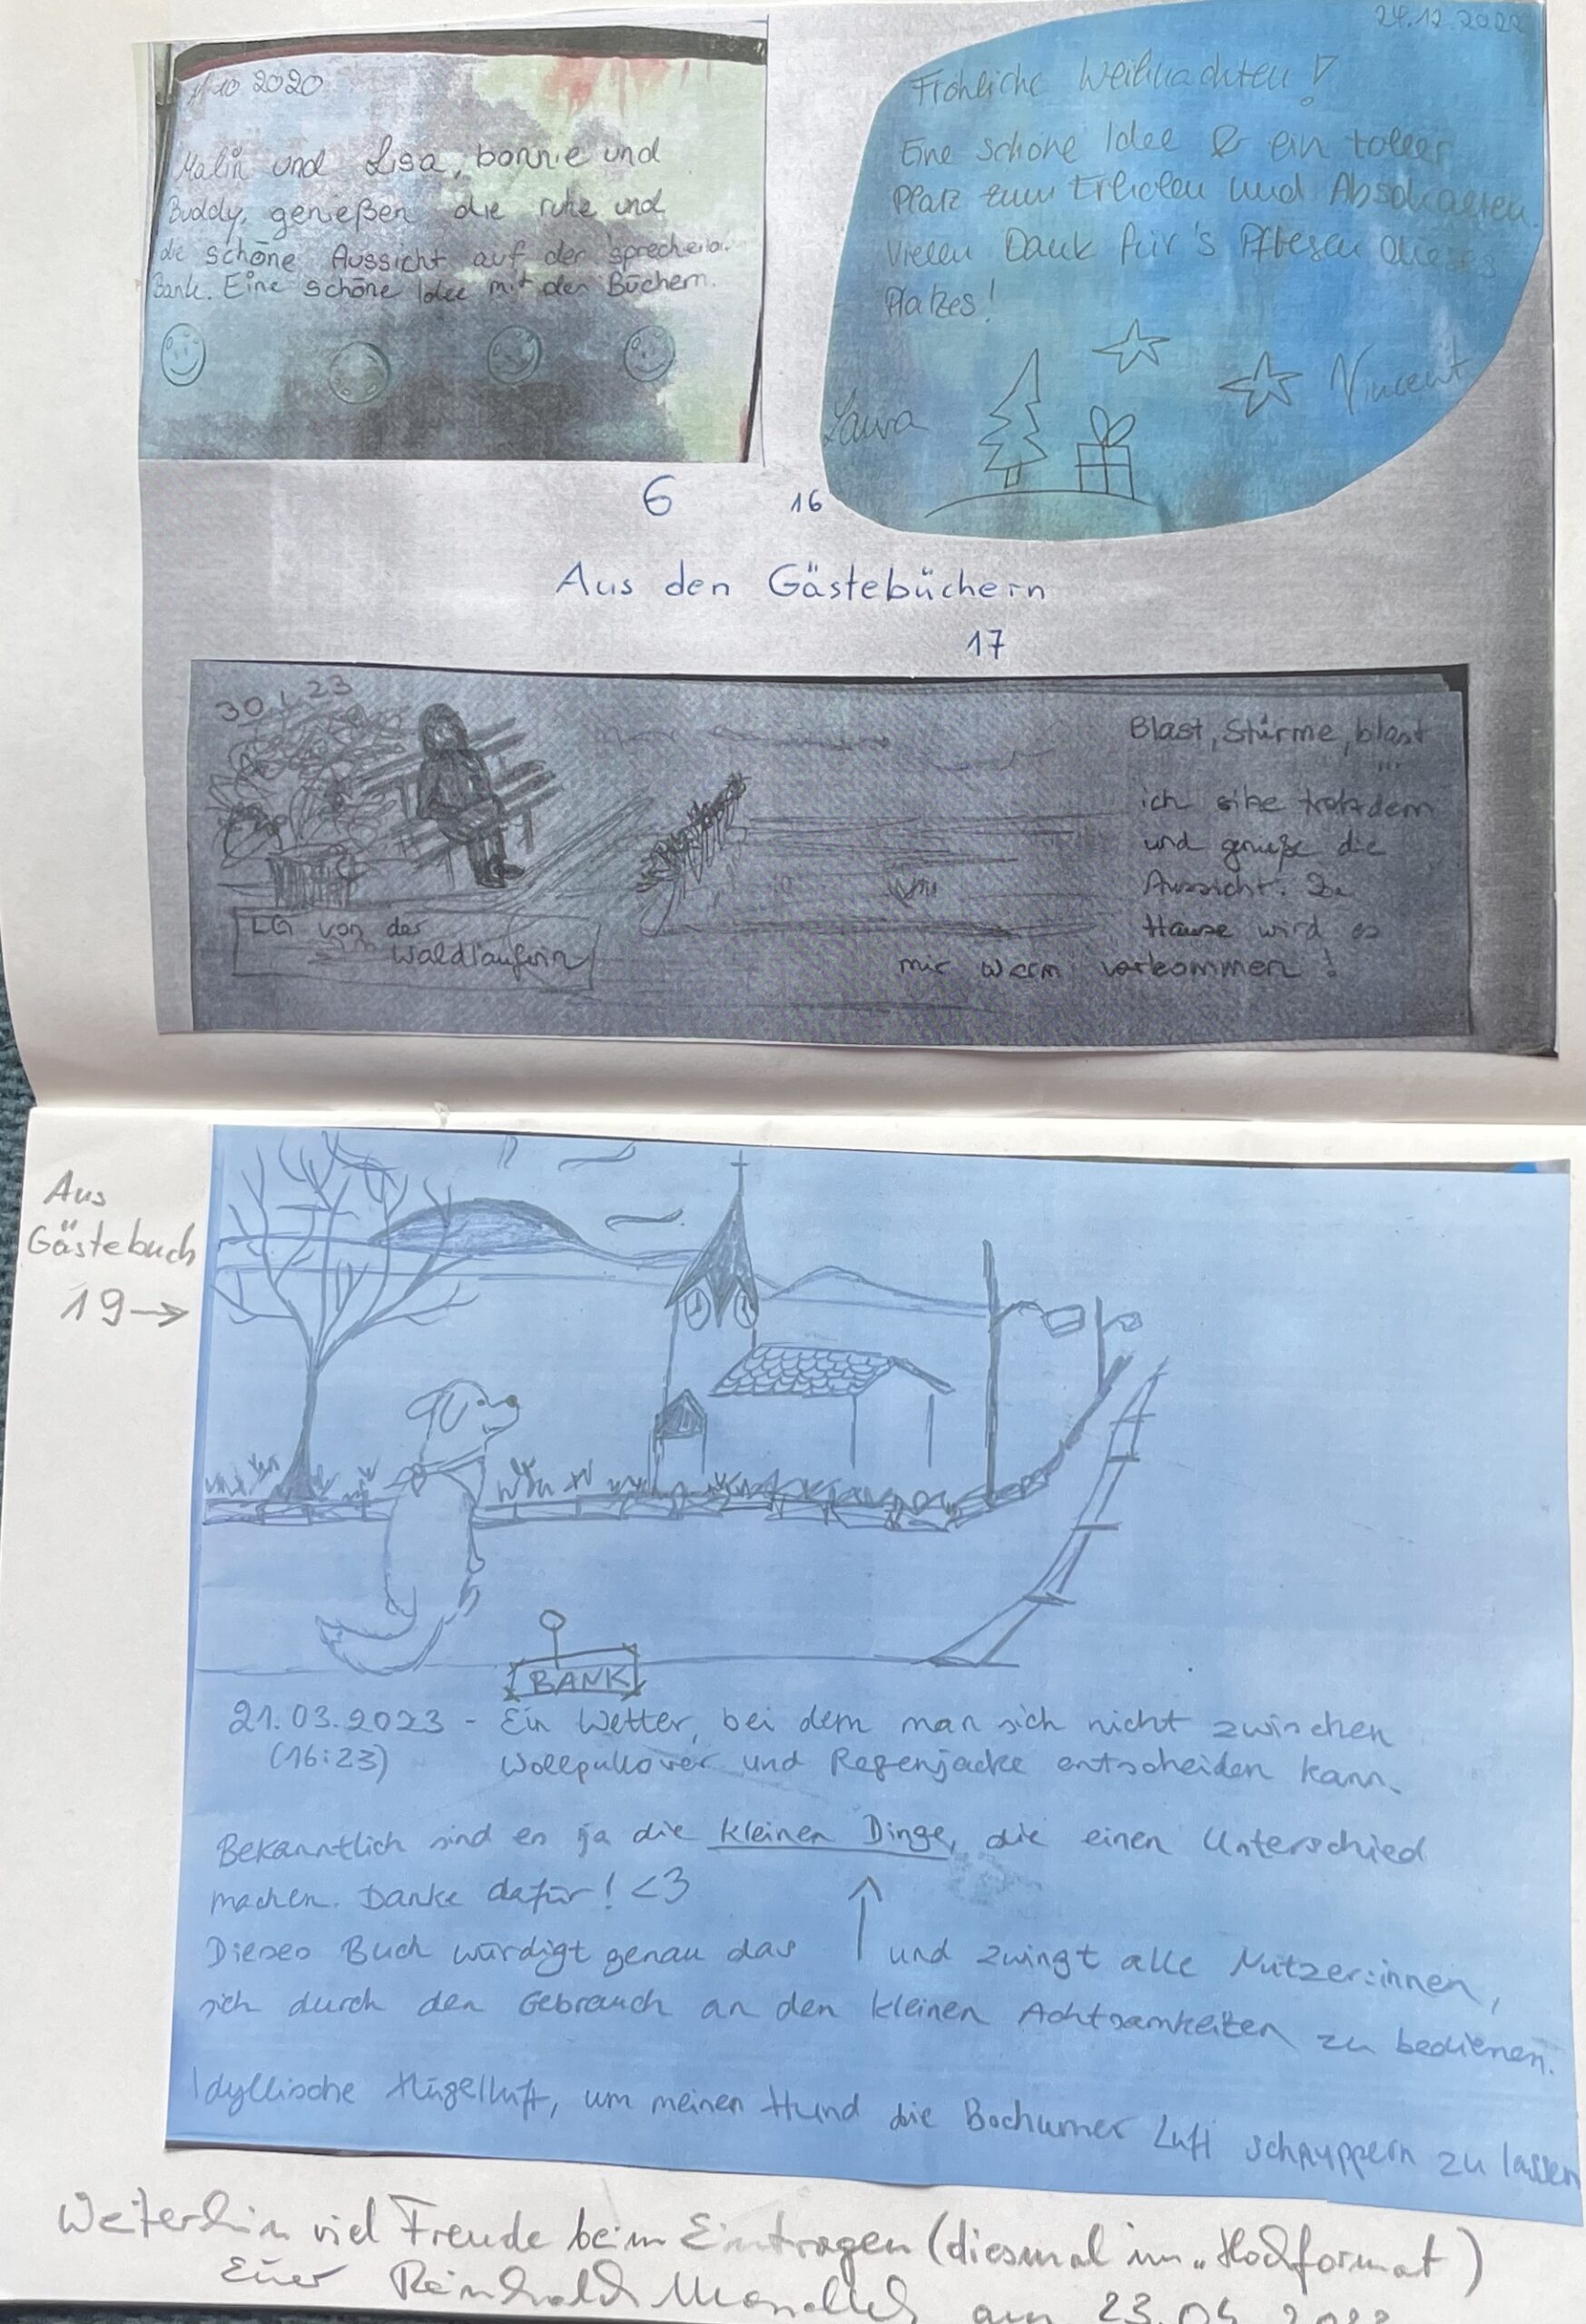 10 2020
Malin und Lisa, bonnie und
Buddy, genießen die ruhe und
die schöne Aussicht auf der
Bank. Eine schöne Idee mit den Büchern.
24.12.2022
Fröhliche Weihnachten!
Eine schöne Idee & ein toller
Platz zum Erholen und Abschalten.
Vielen Dank für's Pflegen dieses
Platzes!
Laura
Vincent
6
16
Aus den Gästebüchern
17
30.1.23
Blast, Stürme, blast
...
ich sitze trotzdem
und genieße die
Aussicht. Zu
Hause wird es
mir warm vorkommen!
LG von der
Waldläuferin
Aus
Gästebuch
19→
BANK
21.03.2023 - Ein Wetter, bei dem man sich nicht zwischen
(16:23) Wollpullover und Regenjacke entscheiden kann.
Bekanntlich sind es ja die kleinen Dinge, die einen Unterschied
machen. Danke dafür! <3
Dieses Buch würdigt genau das ↑ und zwingt alle Nutzer:innen,
sich durch den Gebrauch an den kleinen Achtsamkeiten zu bedienen.
Idyllische Hügelluft, um meinen Hund die Bochumer Luft schnuppern zu lassen
Weiterhin viel Freude beim Eintragen (diesmal im „Hochformat)
Euer Reinhold am 23.04.